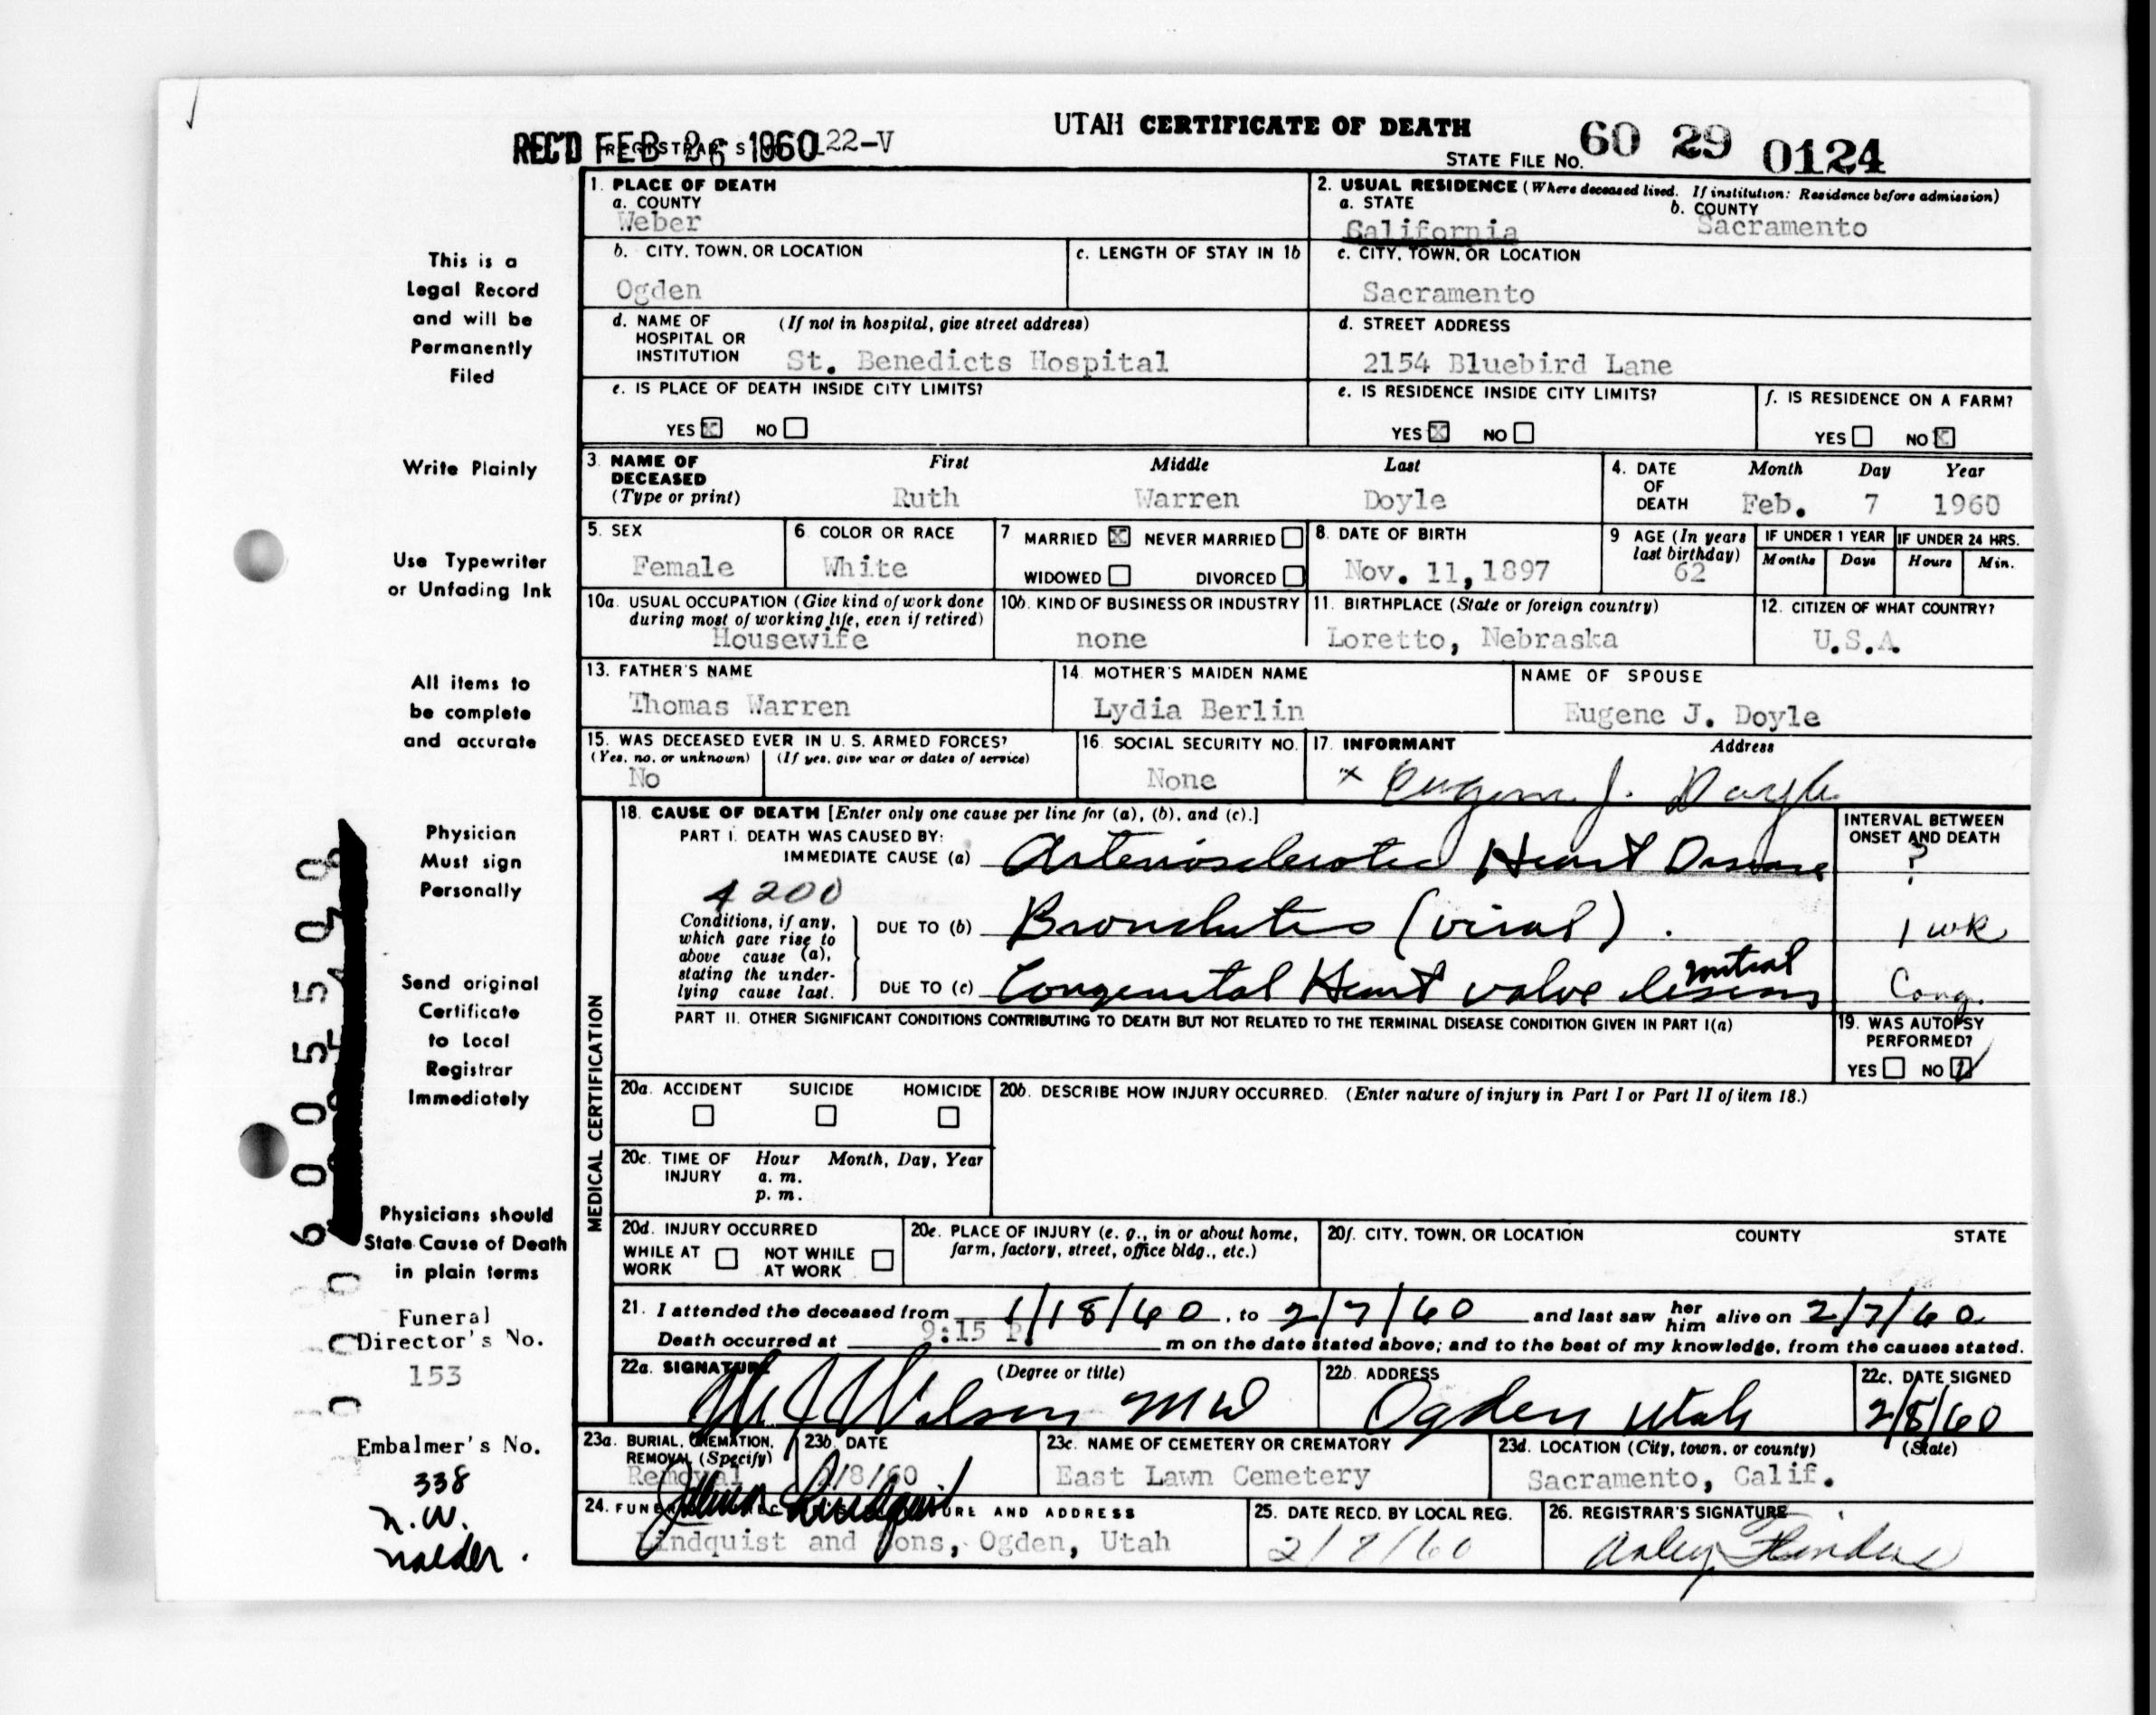 UTAH CERTIFICATE OF DEATH
REC'D FEB 26 1960 22-V
STATE FILE NO. 60 29 0124
1. PLACE OF DEATH
a. COUNTY
Weber
2. USUAL RESIDENCE (Where deceased lived. If institution: Residence before admission)
a. STATE b. COUNTY
California Sacramento
b. CITY, TOWN, OR LOCATION
Ogden
c. LENGTH OF STAY IN 1b
c. CITY, TOWN, OR LOCATION
Sacramento
d. NAME OF (If not in hospital, give street address)
HOSPITAL OR
INSTITUTION St. Benedicts Hospital
d. STREET ADDRESS
2154 Bluebird Lane
e. IS PLACE OF DEATH INSIDE CITY LIMITS?
YES X NO
e. IS RESIDENCE INSIDE CITY LIMITS?
YES X NO
f. IS RESIDENCE ON A FARM?
YES NO X
3. NAME OF First Middle Last
DECEASED
(Type or print) Ruth Warren Doyle
4. DATE Month Day Year
OF
DEATH Feb. 7 1960
5. SEX
Female
6. COLOR OR RACE
White
7 MARRIED X NEVER MARRIED
WIDOWED DIVORCED
8. DATE OF BIRTH
Nov. 11, 1897
9 AGE (In years
last birthday)
62
IF UNDER 1 YEAR
Months Days
IF UNDER 24 HRS.
Hours Min.
10a. USUAL OCCUPATION (Give kind of work done
during most of working life, even if retired)
Housewife
10b. KIND OF BUSINESS OR INDUSTRY
none
11. BIRTHPLACE (State or foreign country)
Loretto, Nebraska
12. CITIZEN OF WHAT COUNTRY?
U.S.A.
13. FATHER'S NAME
Thomas Warren
14. MOTHER'S MAIDEN NAME
Lydia Berlin
NAME OF SPOUSE
Eugene J. Doyle
15. WAS DECEASED EVER IN U. S. ARMED FORCES?
(Yes, no, or unknown) (If yes, give war or dates of service)
No
16. SOCIAL SECURITY NO.
None
17. INFORMANT Address
x Eugene J. Doyle
MEDICAL CERTIFICATION
18. CAUSE OF DEATH [Enter only one cause per line for (a), (b), and (c).]
PART I. DEATH WAS CAUSED BY:
IMMEDIATE CAUSE (a) Arteriosclerotic Heart Disease
INTERVAL BETWEEN
ONSET AND DEATH
?
4200
Conditions, if any,
which gave rise to
above cause (a),
stating the under-
lying cause last.
DUE TO (b) Bronchitis (viral). 1 wk
DUE TO (c) Congenital Heart valve lesions mitral Cong.
PART II. OTHER SIGNIFICANT CONDITIONS CONTRIBUTING TO DEATH BUT NOT RELATED TO THE TERMINAL DISEASE CONDITION GIVEN IN PART I(a)
19. WAS AUTOPSY
PERFORMED?
YES NO
20a. ACCIDENT SUICIDE HOMICIDE
20b. DESCRIBE HOW INJURY OCCURRED. (Enter nature of injury in Part I or Part II of item 18.)
20c. TIME OF Hour Month, Day, Year
INJURY a. m.
p. m.
20d. INJURY OCCURRED
WHILE AT NOT WHILE
WORK AT WORK
20e. PLACE OF INJURY (e. g., in or about home,
farm, factory, street, office bldg., etc.)
20f. CITY, TOWN, OR LOCATION COUNTY STATE
21. I attended the deceased from 1/18/60, to 2/7/60 and last saw her him alive on 2/7/60
Death occurred at 9:15 P. m on the date stated above; and to the best of my knowledge, from the causes stated.
22a. SIGNATURE (Degree or title)
Wilson MD
22b. ADDRESS
Ogden Utah
22c. DATE SIGNED
2/8/60
23a. BURIAL, CREMATION,
REMOVAL (Specify)
Removal
23b. DATE
2/8/60
23c. NAME OF CEMETERY OR CREMATORY
East Lawn Cemetery
23d. LOCATION (City, town, or county) (State)
Sacramento, Calif.
24. FUNERAL DIRECTOR'S SIGNATURE AND ADDRESS
Lindquist and Sons, Ogden, Utah
25. DATE RECD. BY LOCAL REG.
26. REGISTRAR'S SIGNATURE
This is a
Legal Record
and will be
Permanently
Filed
Write Plainly
Use Typewriter
or Unfading Ink
All items to
be complete
and accurate
Physician
Must sign
Personally
Send original
Certificate
to Local
Registrar
Immediately
Physicians should
State Cause of Death
in plain terms
Funeral
Director's No.
153
Embalmer's No.
338
N.W.
Nalder.